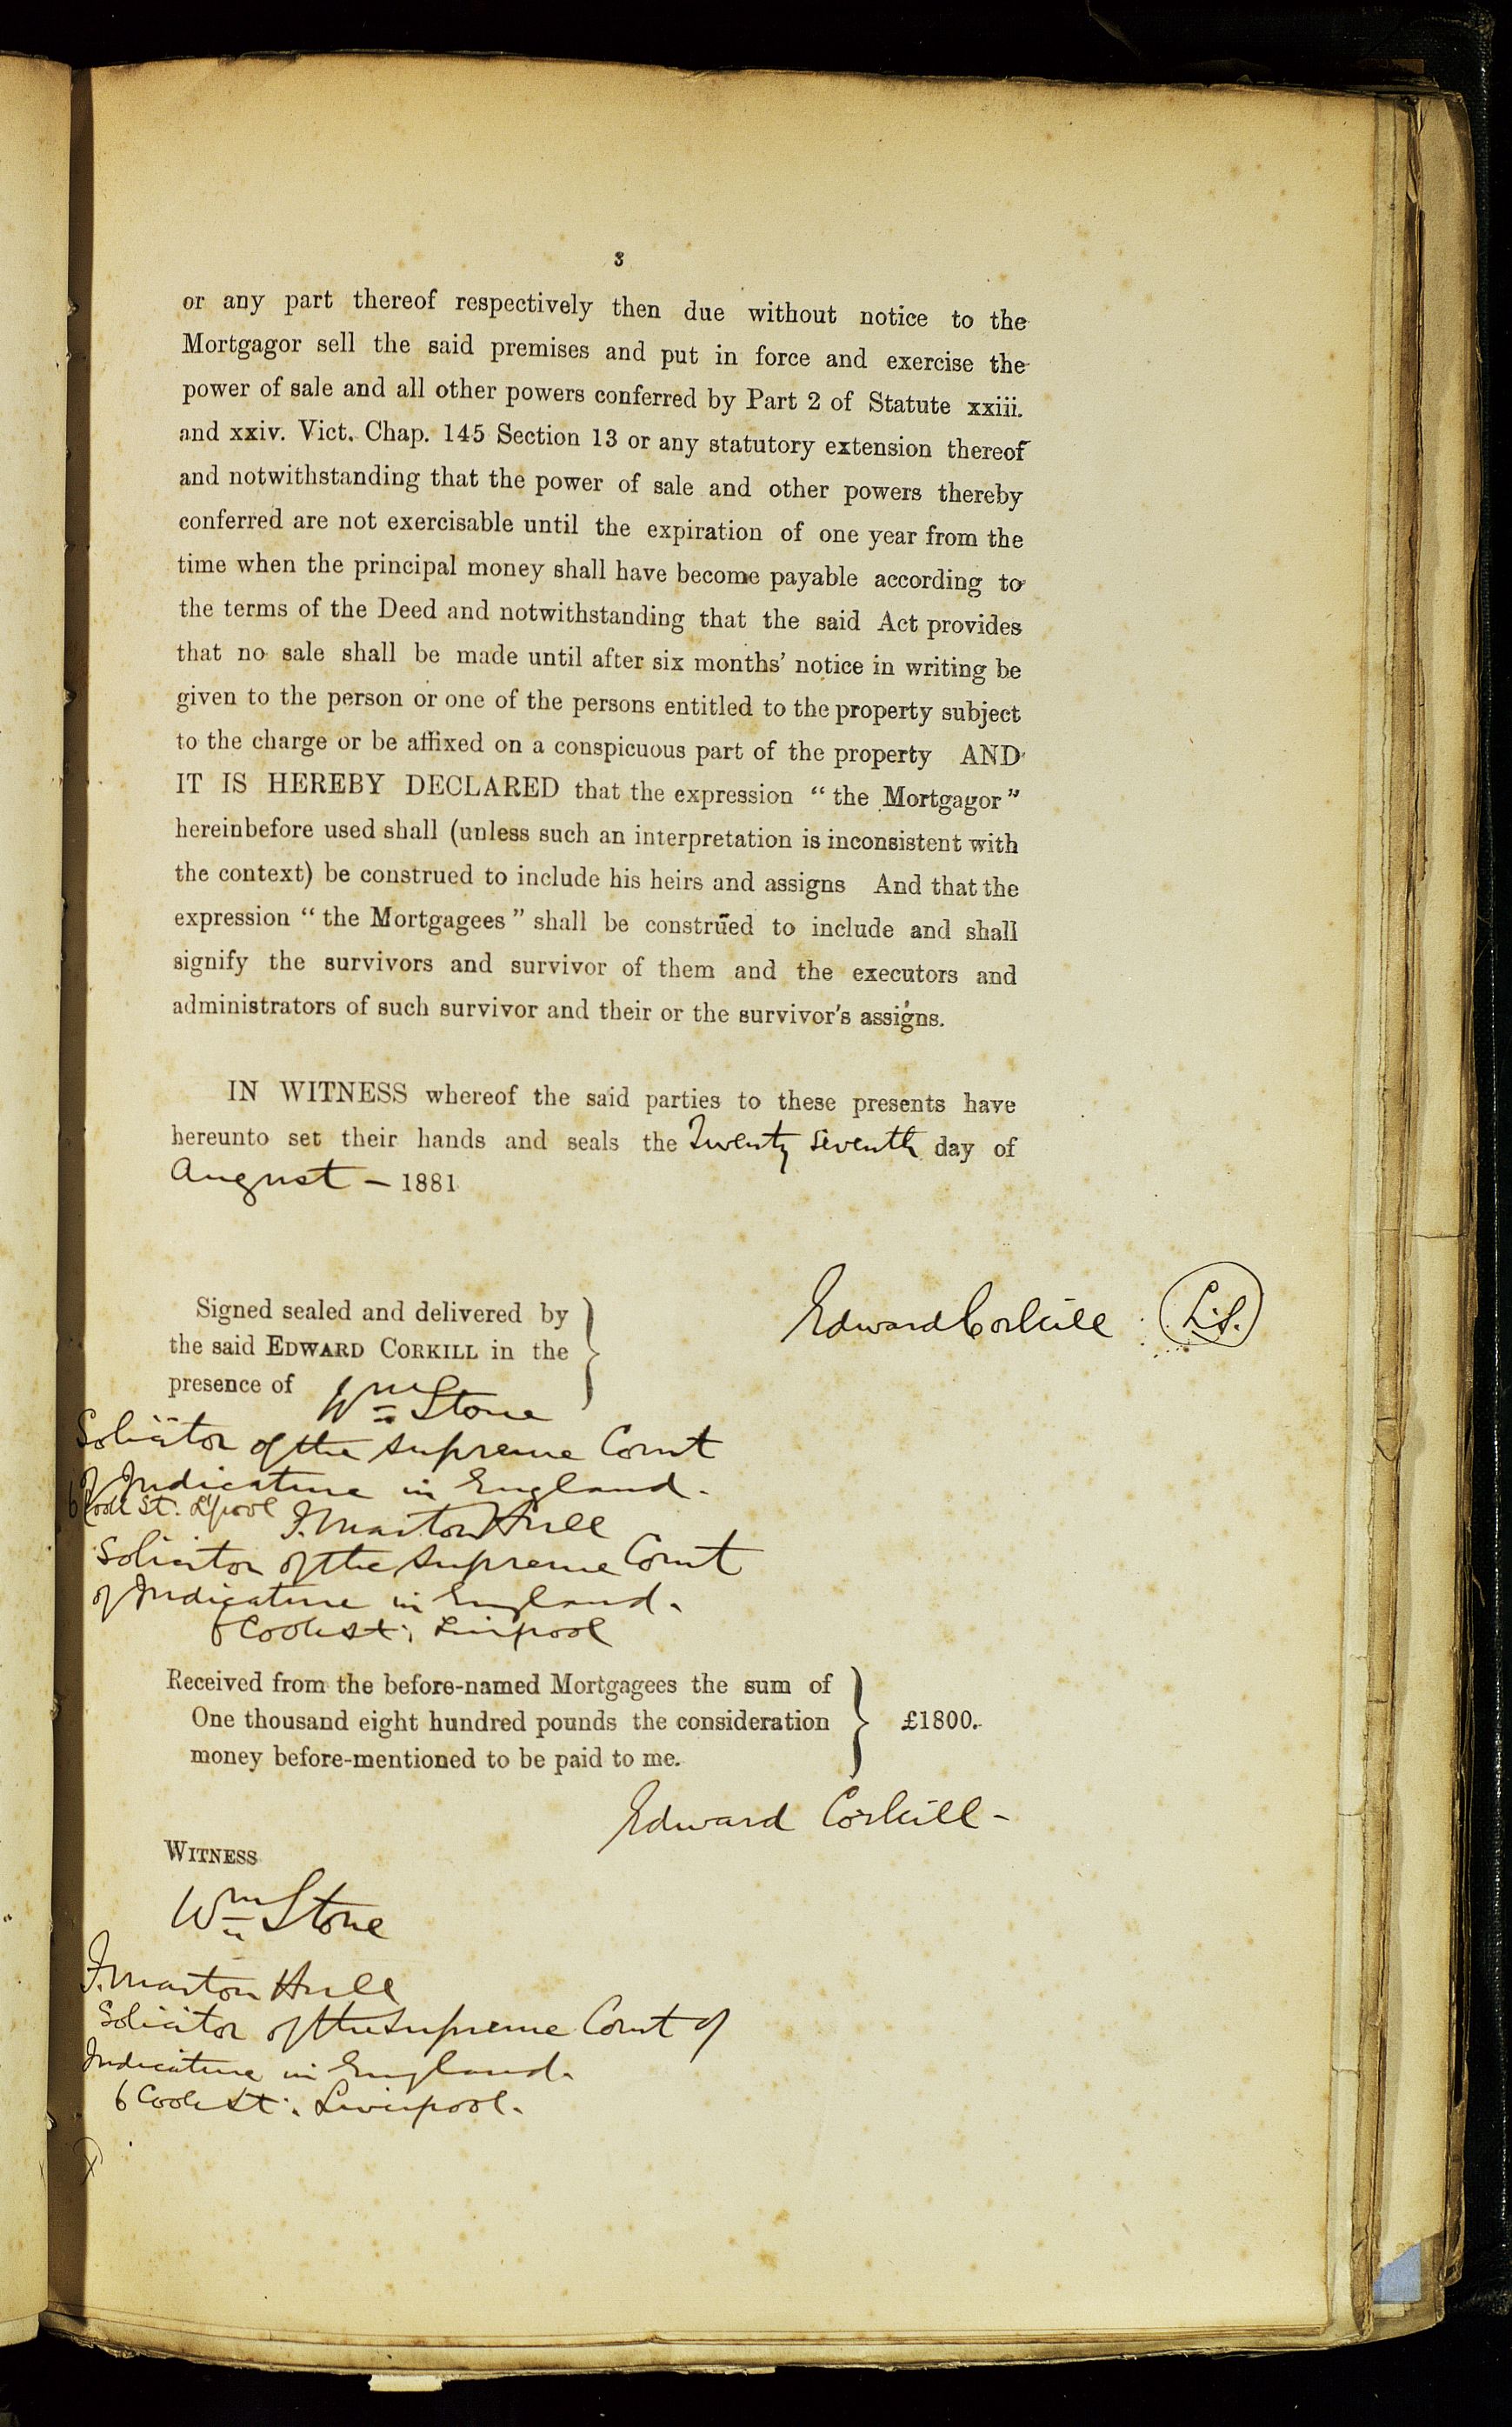 3
or any part thereof respectively then due without notice to the
Mortgagor sell the said premises and put in force and exercise the
power of sale and all other powers conferred by Part 2 of Statute xxiii.
and xxiv. Vict. Chap. 145 Section 13 or any statutory extension thereof
and notwithstanding that the power of sale and other powers thereby
conferred are not exercisable until the expiration of one year from the
time when the principal money shall have become payable according to
the terms of the Deed and notwithstanding that the said Act provides
that no sale shall be made until after six months' notice in writing be
given to the person or one of the persons entitled to the property subject
to the charge or be affixed on a conspicuous part of the property AND
IT IS HEREBY DECLARED that the expression "the Mortgagor"
hereinbefore used shall (unless such an interpretation is inconsistent with
the context) be construed to include his heirs and assigns And that the
expression "the Mortgagees" shall be construed to include and shall
signify the survivors and survivor of them and the executors and
administrators of such survivor and their or the survivor's assigns.
IN WITNESS whereof the said parties to these presents have
hereunto set their hands and seals the Twenty Seventh day of
August – 1881
Signed sealed and delivered by
the said EDWARD CORKILL in the
presence of Wm Stone
Edward Corkill L.S.
Solicitor of the Supreme Court
of Judicature in England.
6 Cook St. L'pool
F. Marton Hull
Solicitor of the Supreme Court
of Judicature in England.
6 Cook St. Liverpool
Received from the before-named Mortgagees the sum of
One thousand eight hundred pounds the consideration £1800.
money before-mentioned to be paid to me.
Edward Corkill –
WITNESS
Wm Stone
F. Marton Hull
Solicitor of the Supreme Court of
Judicature in England.
6 Cook St. Liverpool.